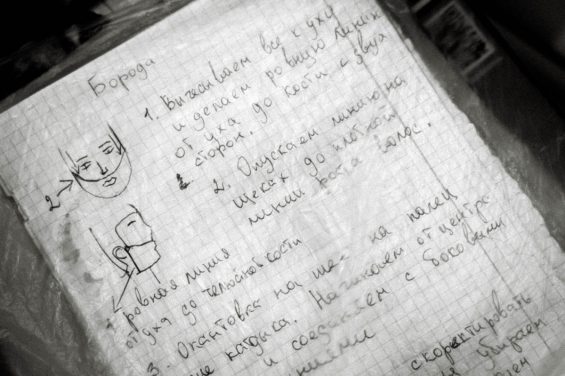 Борода
1. Вычёсываем все к уху
и делаем ровную линию
от уха до кости с двух
сторон.
2. Опускаем линию на
щеках до плотной
линии роста волос.
2
1
ровная линия
от уха до челюстной кости
3. Окантовка на шее на палец
кадыка. Начинаем от центра
и соединяем с боковыми
линиями
скорректировать
убираем